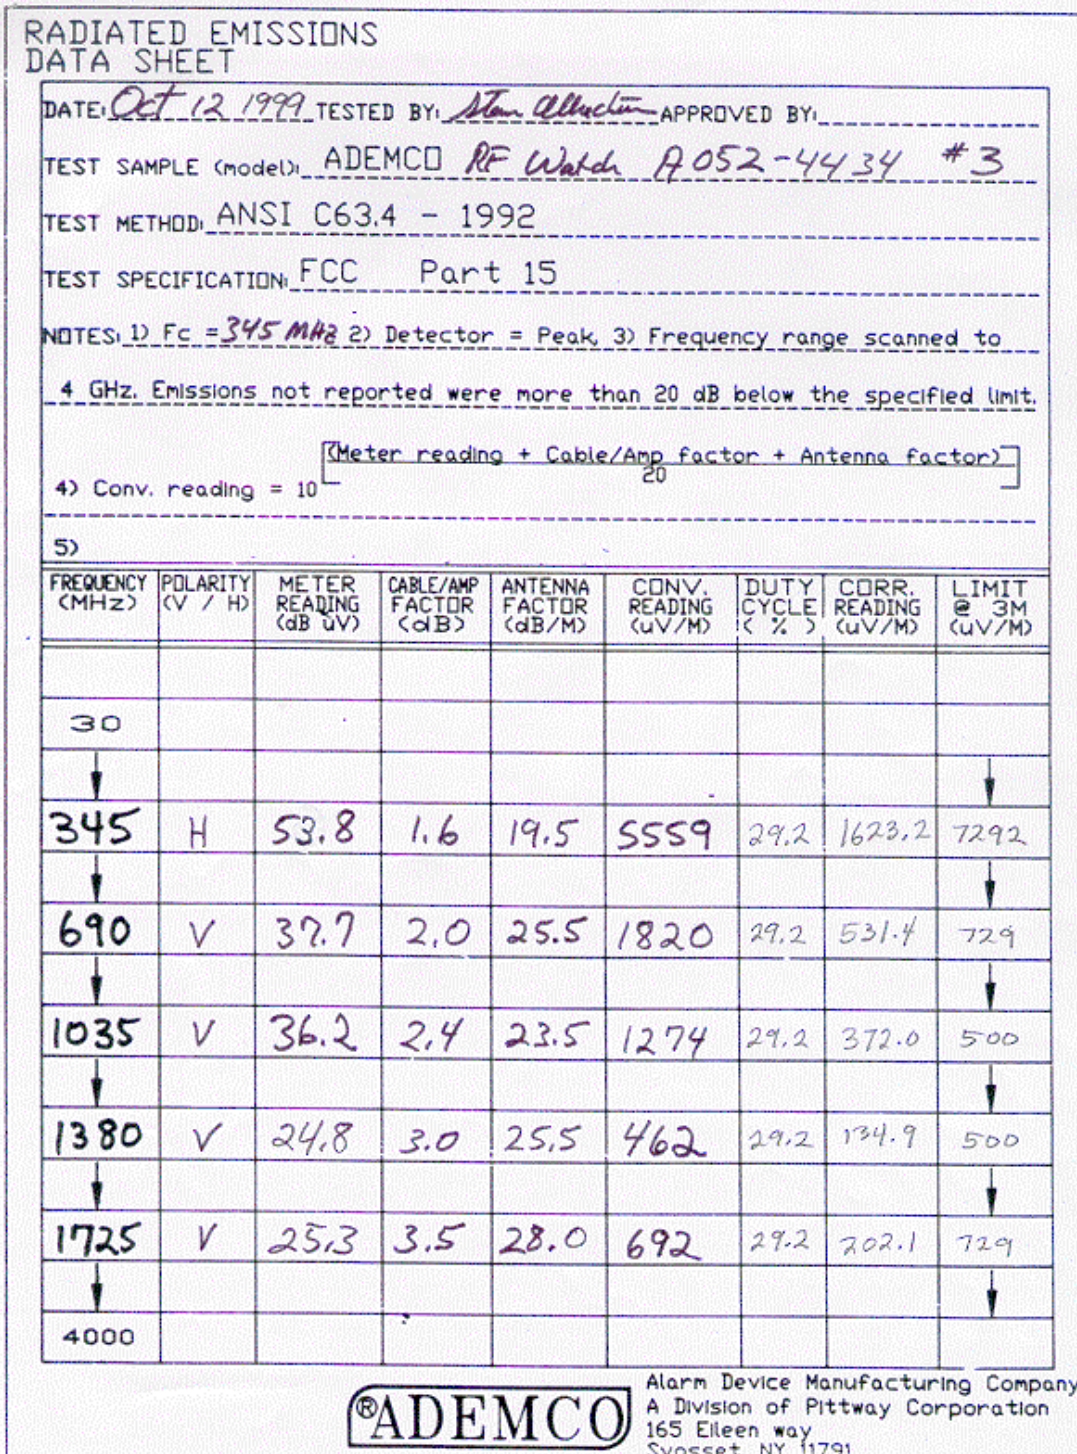 RADIATED EMISSIONS
DATA SHEET
DATE: Oct 12 1999 TESTED BY: APPROVED BY:
TEST SAMPLE (model): ADEMCO RF Watch A052-4434 #3
TEST METHOD: ANSI C63.4 - 1992
TEST SPECIFICATION: FCC Part 15
NOTES: 1) Fc = 345 MHz 2) Detector = Peak, 3) Frequency range scanned to
4 GHz. Emissions not reported were more than 20 dB below the specified limit.
(Meter reading + Cable/Amp factor + Antenna factor)
20
4) Conv. reading = 10
5)
FREQUENCY POLARITY METER CABLE/AMP ANTENNA CONV. DUTY CORR. LIMIT
(MHz) (V / H) READING FACTOR FACTOR READING CYCLE READING @ 3M
(dB uV) (dB) (dB/M) (uV/M) ( % ) (uV/M) (uV/M)
30
345 H 53.8 1.6 19.5 5559 29.2 1623.2 7292
690 V 37.7 2.0 25.5 1820 29.2 531.4 729
1035 V 36.2 2.4 23.5 1274 29.2 372.0 500
1380 V 24.8 3.0 25.5 462 29.2 134.9 500
1725 V 25.3 3.5 28.0 692 29.2 202.1 729
4000
®ADEMCO
Alarm Device Manufacturing Company
A Division of Pittway Corporation
165 Eileen way
Syosset, NY 11791